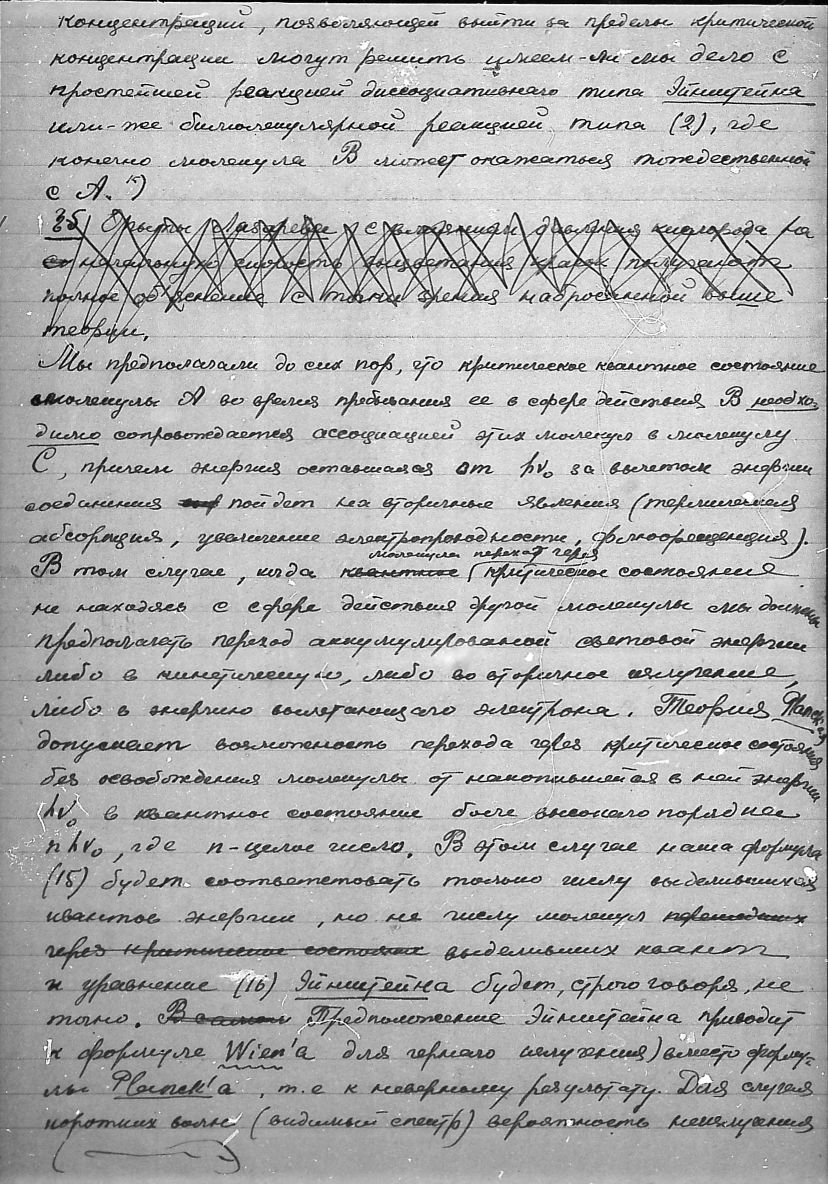 концентраций, позволяющей выйти за пределы критической
концентрации могут решить имеем-ли мы дело с
простейшей реакцией диссоциативнаго типа Эйнштейна
или-же бимолекулярной реакцией типа (2), где
конечно молекула B может оказаться тождественной
с A. 15)
35) Опыты Лазарева с влиянием давления кислорода на
начальную скорость выцветания красок получают
полное объяснение с точки зрения набросанной выше
теории.
Мы предполагали до сих пор, что критическое квантное состояние
молекулы A во время пребывания ее в сфере действия B необхо-
димо сопровождается ассоциацией этих молекул в молекулу
C, причем энергия оставшаяся от hν₀ за вычетом энергии
соединения пойдет на вторичные явления (термическая
абсорбция, увеличение электропроводности, флюоресценция).
молекула переход через
В том случае, когда квантное критическое состояния
не находясь с сфере действия другой молекулы мы должны
предполагать переход аккумулированой световой энергии
либо в кинетическую, либо во вторичное излучение,
либо в энергию вылетающаго электрона. Теория Planck'а
допускает возможность перехода через критическое состояния
без освобождения молекулы от накопившейся в ней энергии
hν₀ в квантное состояние более высокаго порядка
nhν₀, где n-целое число. В этом случае наша формула
(15) будет соответствовать только числу выделившихся
квантов энергии, но не числу молекул перешедших
через критическое состояние выделивших квант
и уравнение (16) Эйнштейна будет, строго говоря, не
точно. Предположение Эйнштейна приводит
к формуле Wien'а для чернаго излучения) вместо форму-
лы Planck'а, т.е к неверному результату. Для случая
коротких волн (видимый спектр) вероятность неизлучения